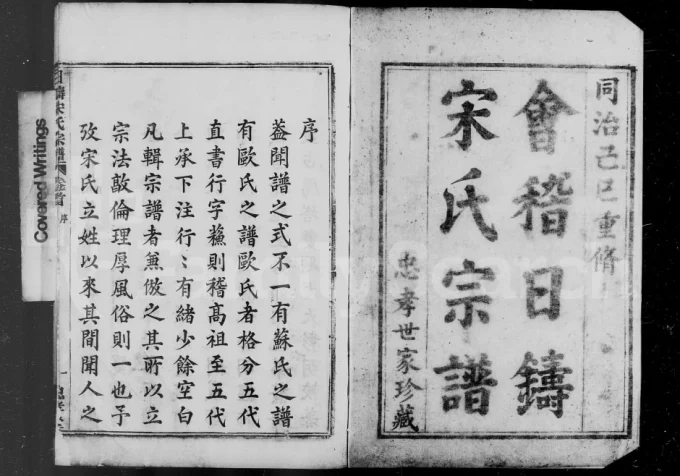 同治己巳重脩
會稽日鑄
宋氏宗譜
忠孝世家珍藏
序
蓋聞譜之式不一有蘇氏之譜
有歐氏之譜歐氏者格分五代
直書行字蘓則稽高祖至五代
上承下注行〻有緒少餘空白
凡輯宗譜者無倣之其所以立
宗法敦倫理厚風俗則一也予
攷宋氏立姓以來其間聞人之
日鑄宋氏宗譜
序
Covered Writings
FamilySearch